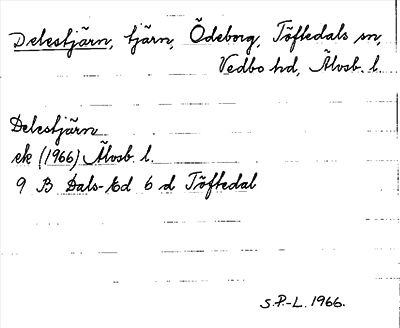 Delestjärn, tjärn, Ödeborg, Töftedals sn,
Vedbo hd, Älvsb. l.
Delestjärn
ek (1966) Älvsb. l.
9 B Dals-Ed 6 d Töftedal
S.P.-L. 1966.